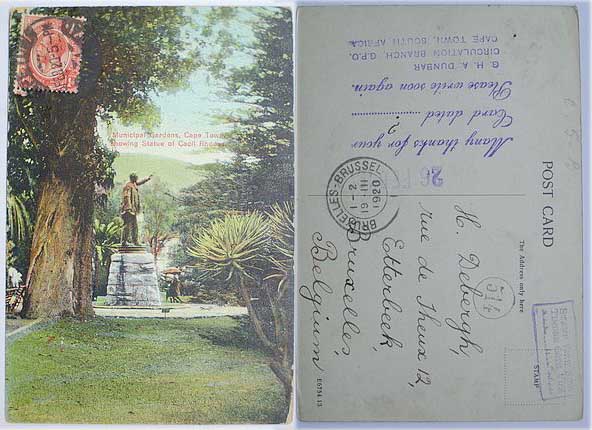 Municipal Gardens, Cape Town
showing Statue of Cecil Rhodes
G. H. A. DUNBAR
CIRCULATION BRANCH G.P.O.
CAPE TOWN, SOUTH AFRICA
Many thanks for your
Card dated
Please write soon again.
26
BRUXELLES-BRUSSEL
1-2
19 III
1920
POST CARD
The Address only here
514
H. Debergh,
rue de Theux 12,
Etterbeek,
Bruxelles,
Belgium
STAMP
E6754-13